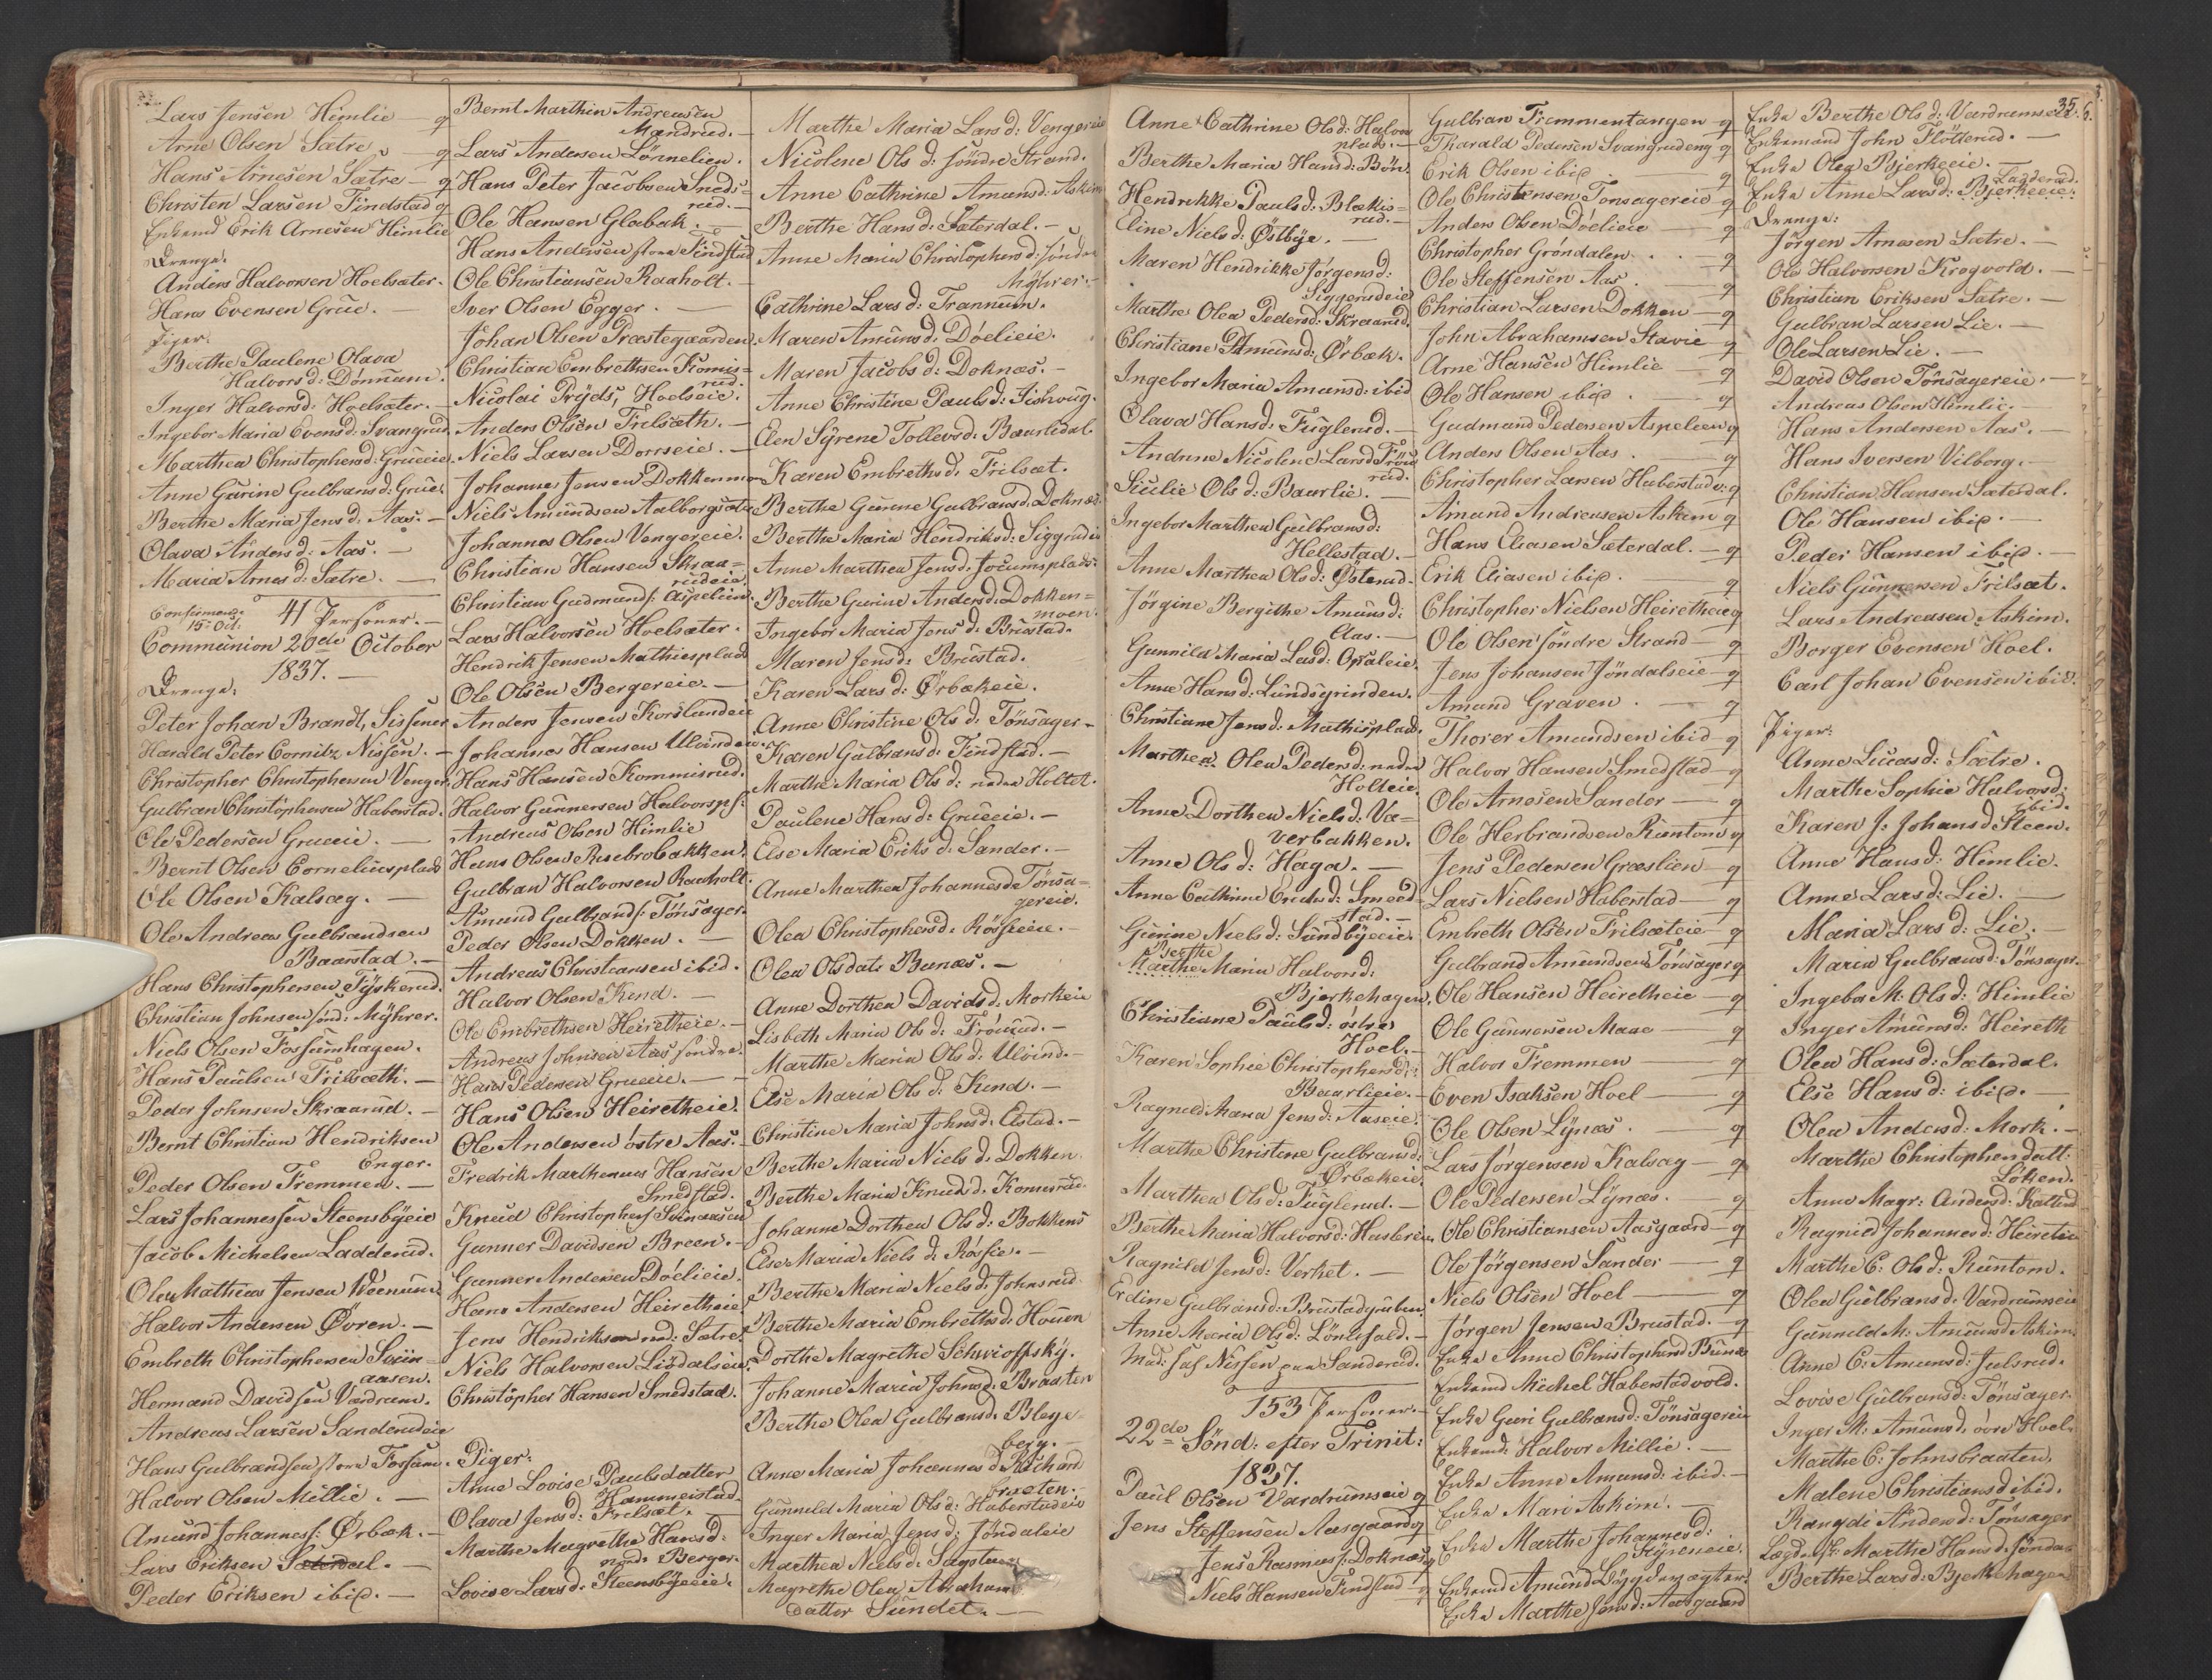 Lars Jensen Himlie — g
Arne Olsen Sætre — g
Hans Arnesen Sætre — g
Christen Larsen Findstad g
Enkemd Erik Arnesen Himlie
Drenge:
Anders Halvorsen Hoelsæter.
Hans Evensen Grüe. —
Piger:
Berthe Paulene Olava
Halvorsd: Dönnum.
Inger Halvorsd: Hoelsæter. —
Ingebor Maria Evensd: Svangrud.
Marthea Christophersd: Grüeeie.
Anne Gurine Gulbransd: Grüe.
Berthe Maria Jensd: Aas. —
Olava Andersd: Aas. —
Maria Arnesd: Sætre. —
Confirmand: 15 Oct:
41 Personer. —
Communion 20de October
1837. —
Drenge:
Peter Johan Brandt, Sissener
Harald Peter Cornitz Nissen. —
Christopher Christophersen Venger
Gulbran Christophersen Haberstad.
Ole Pedersen Grueeie. —
Bernt Olsen Corneliusplads
Ole Olsen Kalsæg. —
Ole Andreas Gulbrandsen
Baarstad. —
Hans Christophersen Tÿskerud.
Christian Johnsen sönd: Mÿhrer.
Niels Olsen Fossumhagen.
Hans Paulsen Frilsæth. —
Peder Johnsen Skraarud. —
Bernt Christian Hendriksen
Enger.
Peder Olsen Fremmen. —
Lars Johannessen Steensbÿeie
Jacob Michelsen Ladderud.
Ole Mathias Jensen
Halvor Andersen Øvren. —
Embreth Christophersen Sviin=
aasen.
Hermand Davidsen Vardrum.
Andreas Larsen Sanderudeie
Hans Gulbrandsen store Fossum.
Halvor Olsen Millie. —
Amund Johanness: Ørbæk. —
Lars Eriksen Sæterdal. —
Peder Eriksen ibid. —
Bernt Marthin Andreasen
Mandrud. —
Lars Andersen Lönnelien.
Hans Peter Jacobsen Sneds=
rud. —
Ole Hansen Glabak. —
Hans Andersen store Findstad
Ole Christiansen Raaholt. —
Iver Olsen Egger. —
Johan Olsen Præstegaarden.
Christian Embrethsen Komis=
rud.
Nicolai Prÿds, Hoelseie.
Anders Olsen Frilsæth. —
Niels Larsen Dorrseie. —
Johannes Jensen Dokkenmo
Niels Amundsen Aalborgsæter
Johannes Olsen Vengereie.
Christian Hansen Skraa=
rudeie.
Christian Gudmunds: Aspelien.
Lars Halvorsen Hoelsæter.
Hendrik Jensen Mathiesplads
Ole Olsen Bergereie. —
Anders Jensen Korslundeie
Johannes Hansen Ulvindeie.
Hans Hansen Kommisrud.
Halvor Gunnersen Halvorspl:
Andreas Olsen Himlie
Hans Olsen Rusebrobakken.
Gulbran Halvorsen Raaholt.
Amund Gulbrands: Tönsager.
Peder Olsen Dokken. —
Andreas Christiansen ibid.
Halvor Olsen Kind. —
Ole Embrethsen Heiretheie. —
Andreas Johnsen Aas söndre.
Hans Pedersen Grueeie. —
Hans Olsen Heiretheie.
Ole Andersen östre Aas. —
Fredrik Marthenius Hansen
Smedstad.
Knud Christophers Sviinaasen
Gunner Davidsen Breen. —
Gunner Andersen Döelieie.
Hans Andersen Heiretheie
Jens Hendriksen nd: Sætre.
Niels Halvorsen Lisdalseie.
Christopher Hansen Smedstad.
Piger:
Anne Lovise Paulsdatter
Hammerstad
Olava Jensd: Frilsæt. —
Marthe Magrethe Hansd:
nedr Berger.
Lovise Larsd: Steensbÿeeie.
Marthe Maria Larsd: Vengereie
Nicolene Olsd: söndre Strand.
Anne Cathrine Amunsd: Askim
Berthe Hansd: Sæterdal. —
Anne Maria Christophersd: söndre
Mÿhrer. —
Cathrine Larsd: Trannum.
Maren Amunsd: Döelieie.
Maren Jacobsd: Doknæs. —
Anne Christine Paulsd: Fishvüg.
Elen Sÿrene Tollevsd: Baurledal.
Karen Embrethsd: Frilsæt.
Berthe Gurine Gulbransd: Doknæs.
Berthe Maria Hendriksd: Siggrudeie
Anne Marthea Jensd: Jocumsplads.
Berthe Gurine Andersd: Dokken=
moen.
Ingebor Maria Jensd: Brüstad.
Maren Jensd: Brüstad.
Karen Larsd: Ørbækeie.
Anne Christine Olsd: Tönsager-
Karen Gülbransd: Findstad. —
Marthe Maria Olsd: nedre Holtet.
Paulene Hansd: Grüeeie. —
Else Maria Eriksd: Sander. —
Anne Marthea Johannesd: Tönsa=
gereie.
Olea Christophersd: Rösseeie. —
Olea Olsdatr Bunæs. —
Anne Dorthea Davidsd: Morkeie
Lisbeth Maria Olsd: Fröisrud. —
Marthe Maria Olsd: Ulvind. —
Else Maria Olsd: Kind. —
Christine Maria Johnsd: Elstad. —
Berthe Maria Nielsd: Dokken.
Berthe Maria Knudsd: Komisrud.
Johanne Dorthea Olsd: Bokkens
Else Maria Nielsd: Rösse. —
Berthe Maria Nielsd: Johnsrud
Berthe Maria Embrethsd: Houen
Dorthe Magrethe Schwioffskÿ.
Johanne Maria Johnsd: Braaten
Berthe Olea Gulbransd: Bleye-
berg. —
Anne Maria Johannesd: Richard
braaten.
Gunnild Maria Olsd: Haberstadeie
Inger Maria Jensd: Jöndaleie
Marthea Nielsd: Sagstuen
Magrethe Olea Abraham
datter Sundet. —
Anne Cathrine Olsd: Halvors
plads. —
Berthe Maria Hansd: Bön.
Hendrikke Paulsd: Blekis=
rud. —
Eline Nielsd: Østbÿe. —
Maren Hendrikke Jörgensd:
Siggerudeie
Marthe Olea Pedersd: Skraarud.
Christiane Amunsd: Ørbæk.
Ingebor Maria Amunsd: ibid
Olava Hansd: Füglerud. —
Andrine Nicolene Larsd: Fröis
rud.
Sicilie Olsd: Baurlie. —
Ingebor Marthea Gülbransd:
Hellestad. —
Anne Marthea Olsd: Østerud.
Jörgine Bergithe Amunsd:
Aas. —
Gunnild Maria Lasd: Opsaleie.
Anne Hansd: Lundsgrinden.
Christiane Jensd: Mathisplads.
Marthea Olea Pedersd: nedre
Holteie.
Anne Dorthea Nielsd: Va=
verbakken.
Anne Olsd: Haga. —
Anne Cathrine Knudsd: Smeed=
stad. —
Gurine Nielsd: Sundbÿeeie.
Berthe
Marthe Maria Halvorsd:
Bjerkehagen.
Christiane Paulsd: östre
Hoel. —
Karen Sophie Christophersd:
Baarlieie. —
Ragnild Maria Jensd: Aaseie.
Marthe Christine Gulbransd:
Ørbækeie
Marthea Olsd: Füglerud. —
Berthe Maria Halvorsd: Husbreie.
Ragnild Jensd: Verket. —
Erdine Gulbransd: Brüstadgruben.
Anne Maria Olsd: Lönlifald. —
Mad: sal Nissen paa Sanderud.
153 Personer. —
22de Sönd: efter Trinit:
1837.
Paul Olsen Vardrumseie g
Jens Steffensen Aasgaard g
Jens Rasmus: Doknæs g
Niels Hansen Findstad — g
Gulbran Fremmentangen — g
Tharald Pedersen Svangrudeng g
Erik Olsen ibid — g
Ole Christensen Tonsagereie g
Anders Olsen Döelieie — g
Christopher Gröndalen . . — g
Ole Steffensen Aas . — g
Christian Larsen Dokken — g
John Abrahamsen Stavie g
Arne Hansen Himlie — g
Ole Hansen ibid . — g
Gudmand Pedersen Aspelien g
Anders Olsen Aas . — g
Christopher Larsen Haberstadv: g
Amund Andreasen Askim g
Hans Eliasen Sæterdal. — g
Erik Eliasen ibid. — g
Christopher Nielsen Heiretheie g
Ole Olsen söndre Strand — g
Jens Johansen Jöndalseie — g
Amund Graven . — g
Thorer Amundsen ibid — g
Halvor Hansen Smedstad — g
Ole Arnesen Sander — g
Ole Herbrandsen Runtom g
Jens Pedersen Græslien — g
Lars Nielsen Haberstad — g
Embreth Olsen Frilsæteie — g
Gulbrand Amundsen Tönsager g
Ole Hansen Heiretheie — g
Ole Gunnersen Maae — g
Halvor Fremmen — g
Even Isaksen Hoel — g
Ole Olsen Lÿnæs . — g
Lars Jörgensen Kalsæg — g
Ole Pedersen Lÿnæs. — g
Ole Christiansen Aasgaard — g
Ole Jörgensen Sander — g
Niels Olsen Hoel — g
Jörgen Jensen Brustad. — g
Enke Anne Christophersd Bunæs
Enkemd Michel Haberstadvold.
Enke Guri Gulbransd: Tönsagereie
Enkemd: Halvor Millie. —
Enke Anne Amunsd: ibid. —
Enke Mari Askim. —
Enke Marthe Johannesd:
Stÿreneie.
Enkemd Amund
Enke Marthe Jensd: Aasgaard
35.
Enke Berthe Olsd: Vardrumseie
Enkemand John Flötterud. —
Enke Olea Bjerkeeie. —
Ladderud.
Enke Anne Larsd: Bjerkeeie.
Drenge:
Jörgen Arnesen Sætre. —
Ole Halvorsen Krogvold. —
Christian Eriksen Sætre. —
Gulbran Larsen Lie. —
Ole Larsen Lie. —
David Olsen Tönsagereie. —
Andreas Olsen Himlie. —
Hans Andersen Aas. —
Hans Iversen Vilberg. —
Christian Hansen Sæterdal.
Ole Hansen ibid. —
Peder Hansen ibid. —
Niels Gunnersen Frilsæt.
Lars Andreasen Askim.
Borger Evensen Hoel.
Carl Johan Evensen ibid.
Piger:
Anne Lucasd: Sætre.
Marthe Sophie Halvorsd:
ibid.
Karen J: Johansd Steen.
Anne Hansd: Himlie.
Anne Larsd: Lie. —
Maria Larsd: Lie.
Maria Gulbransd: Tönsager.
Ingebor M: Olsd: Himlie
Inger Amunsd: Heireth
Olea Hansd: Sæterdal.
Else Hansd: ibid. —
Olea Andersd: Mork. —
Marthe Christophersdatt:
Löken.
Anne Magr: Andersd: Kallerud
Ragnild Johannesd: Heireteie
Marthe E: Olsd: Runtom.
Olea Gülbransd: Vardrumseie
Gunnild M: Amunsd Askim
Anne C: Amunsd: Julsrud.
Lovise Gülbransd: Tönsager.
Inger M: Amunsd: övre Hoel.
Marthe C: Johnsbraaten.
Malene Christiansd ibid.
Rangdi Andersd: Tönsager
Lægds f: Marthe Hansd: söndre
Berthe Larsd: Bjerkehagen